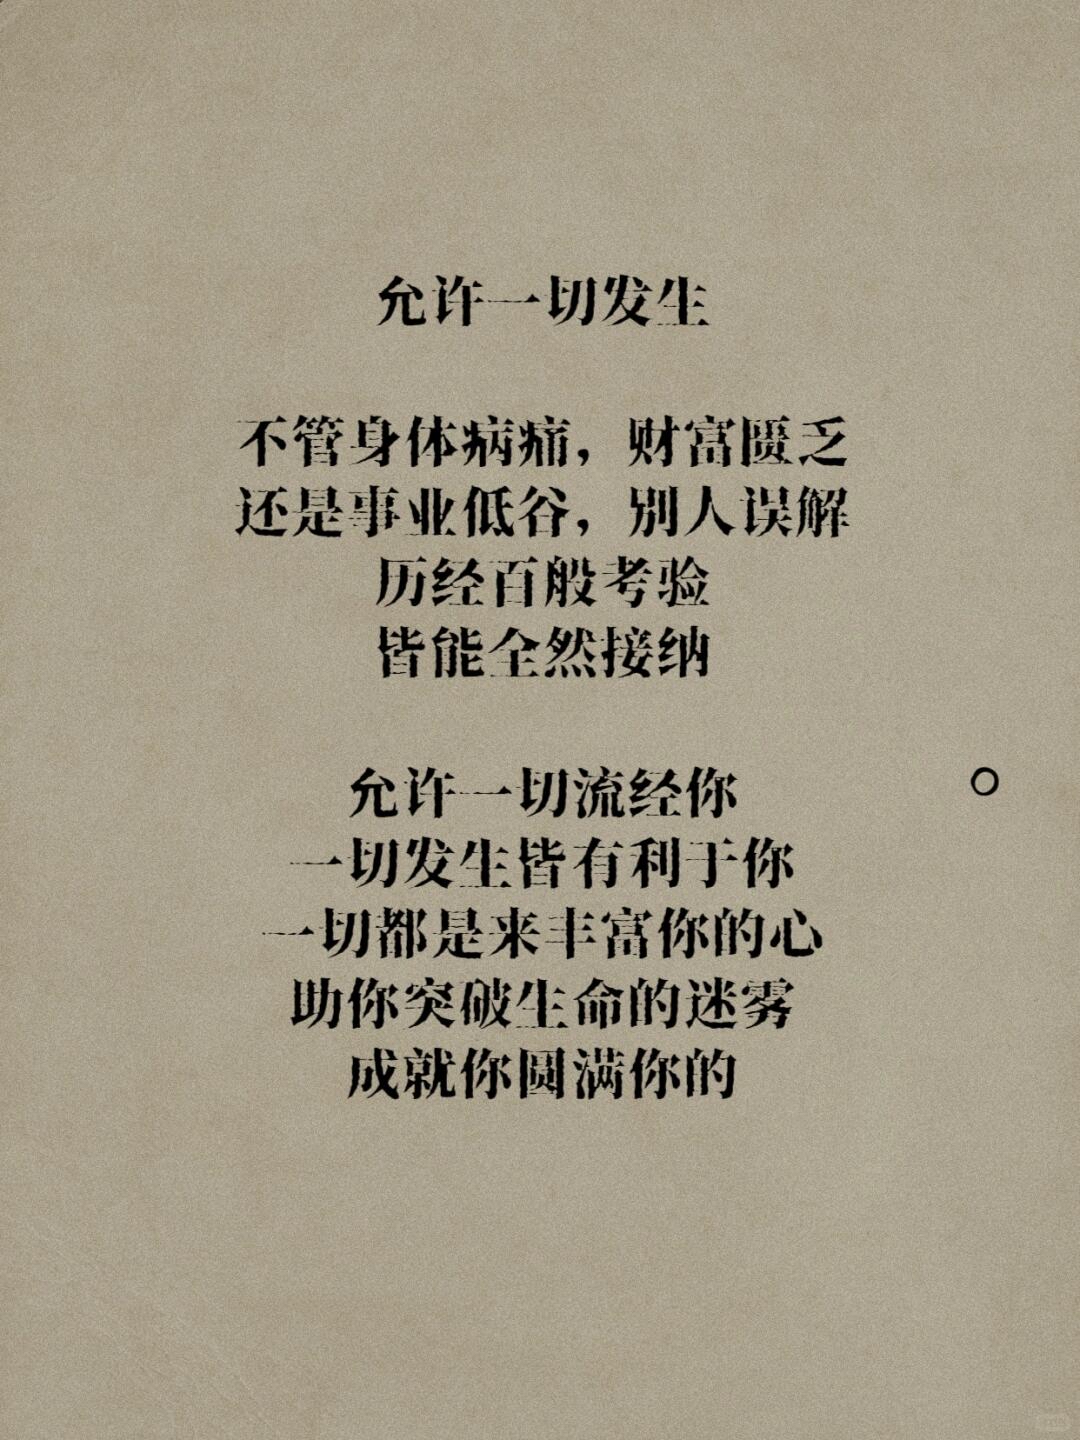 允许一切发生
不管身体病痛，财富匮乏
还是事业低谷，别人误解
历经百般考验
皆能全然接纳
允许一切流经你
一切发生皆有利于你
一切都是来丰富你的心
助你突破生命的迷雾
成就你圆满你的